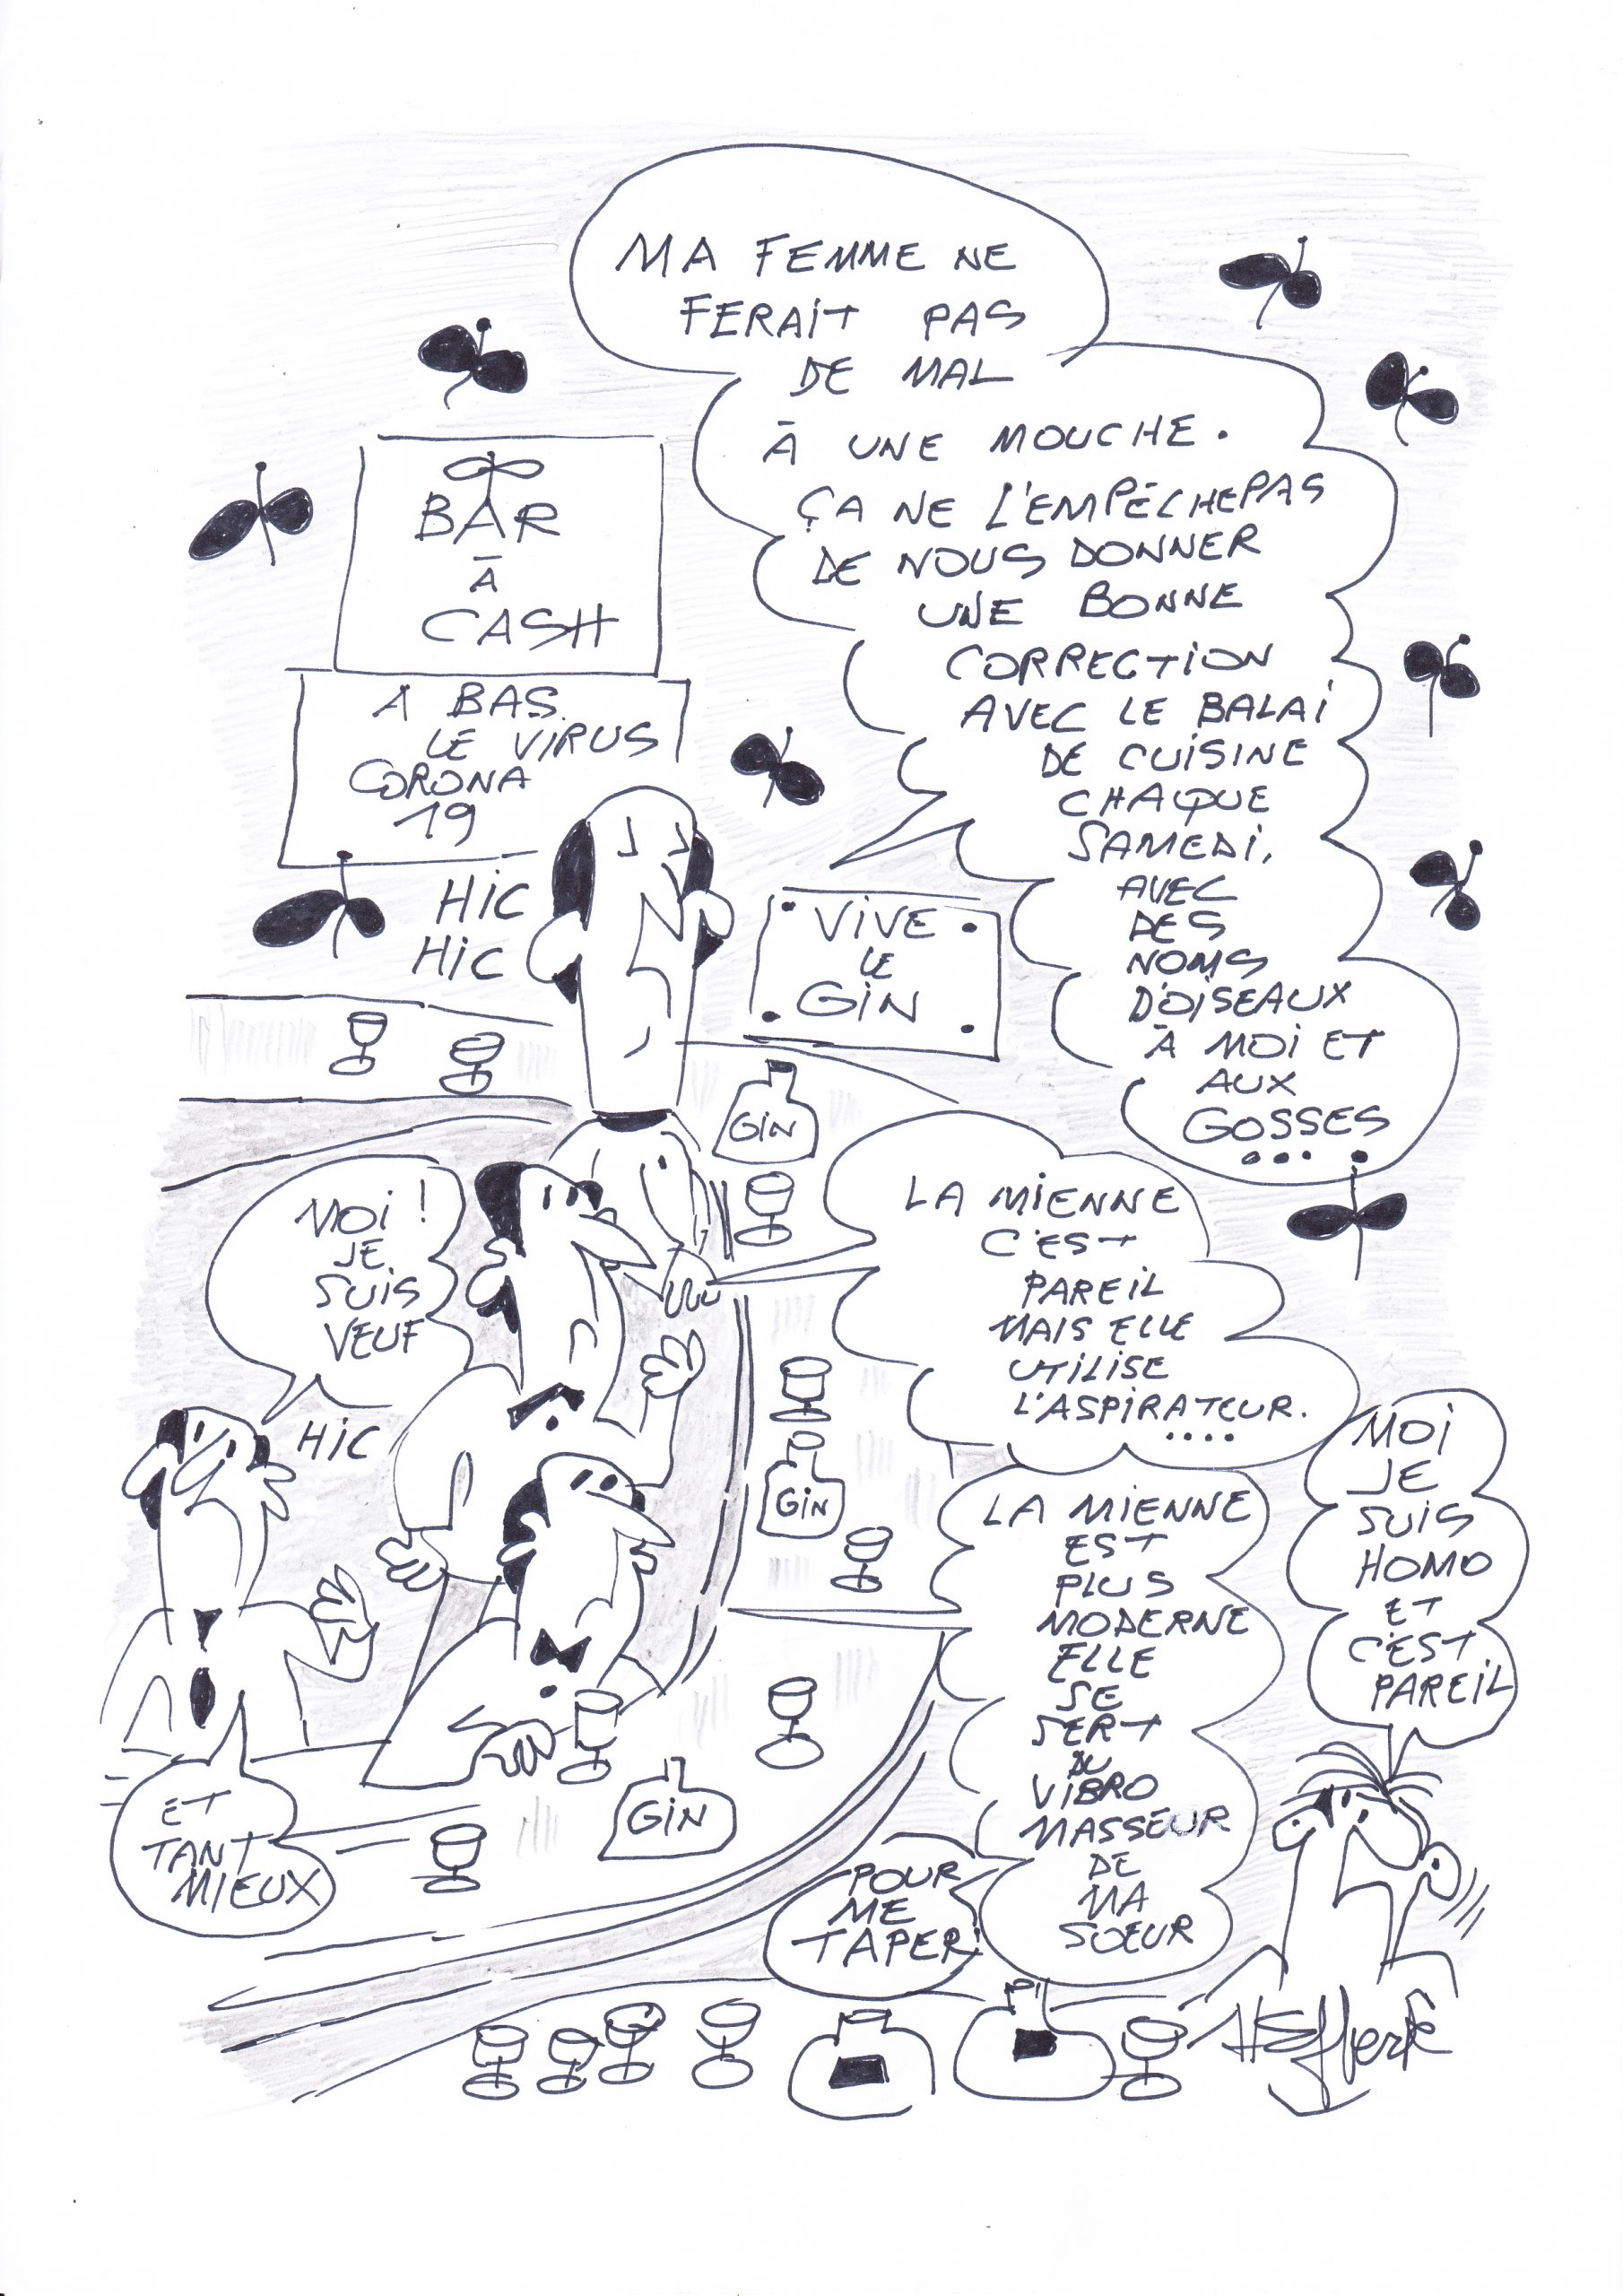 MA FEMME NE
FERAIT PAS
DE MAL
À UNE MOUCHE.
ÇA NE L'EMPÊCHE PAS
DE NOUS DONNER
UNE BONNE
CORRECTION
AVEC LE BALAI
DE CUISINE
CHAQUE
SAMEDI,
AVEC
DES
NOMS
D'OISEAUX
À MOI ET
AUX
GOSSES
...
BAR
À
CASH
A BAS
LE VIRUS
CORONA
19
HIC
HIC
VIVE
LE
GIN
GIN
LA MIENNE
C'EST
PAREIL
MAIS ELLE
UTILISE
L'ASPIRATEUR.
....
MOI !
JE
SUIS
VEUF
HIC
GIN
LA MIENNE
EST
PLUS
MODERNE
ELLE
SE
SERT
DU
VIBRO
MASSEUR
DE
MA
SOEUR
POUR
ME
TAPER!
MOI
JE
SUIS
HOMO
ET
C'EST
PAREIL
ET
TANT
MIEUX
GIN